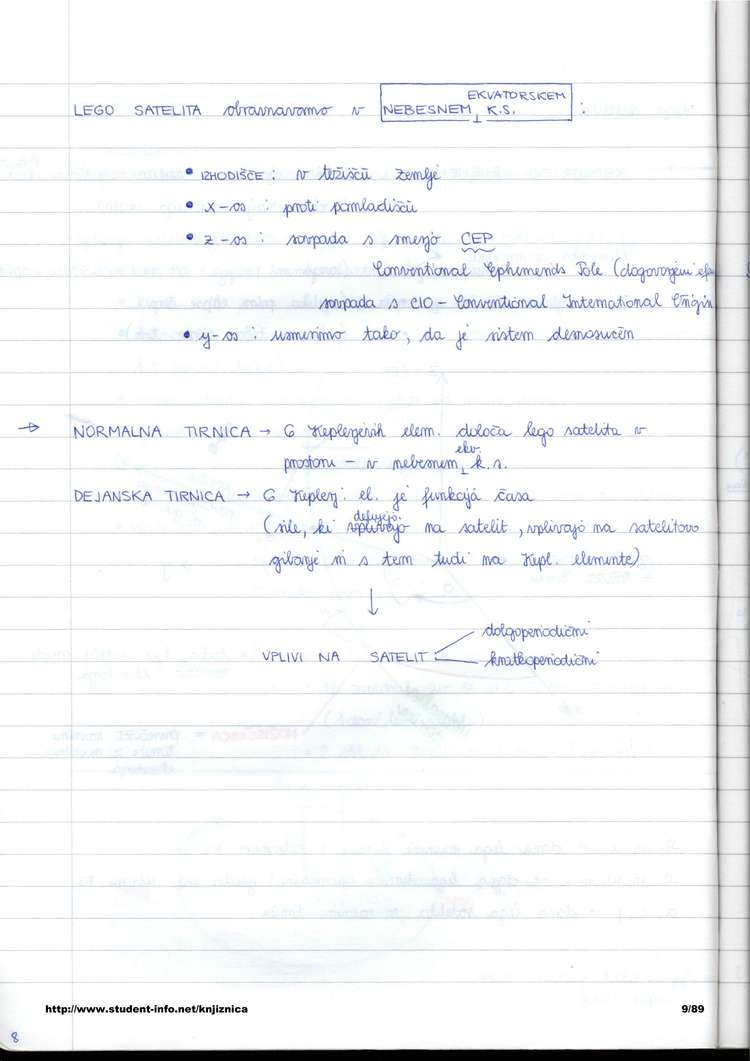 LEGO SATELITA obravnavamo v NEBESNEM EKVATORSKEM K.S. :
• IZHODIŠČE : v težišču Zemlje
• x-os : proti pomladišču
• z-os : sovpada s smerjo CEP
Conventional Ephemeris Pole (dogovorjeni
sovpada s CIO - Conventional International Origin
• y-os : usmerimo tako, da je sistem desnosučen
→ NORMALNA TIRNICA → 6 Keplerjevih elem. določa lego satelita v
prostoru - v nebesnem ekv. k.s.
DEJANSKA TIRNICA → 6 Keplerj. el. je funkcija časa
(sile, ki delujejo na satelit, vplivajo na satelitovo
gibanje in s tem tudi na Kepl. elemente)
↓
VPLIVI NA SATELIT : dolgoperiodični
kratkoperiodični
http://www.student-info.net/knjiznica 9/89
8